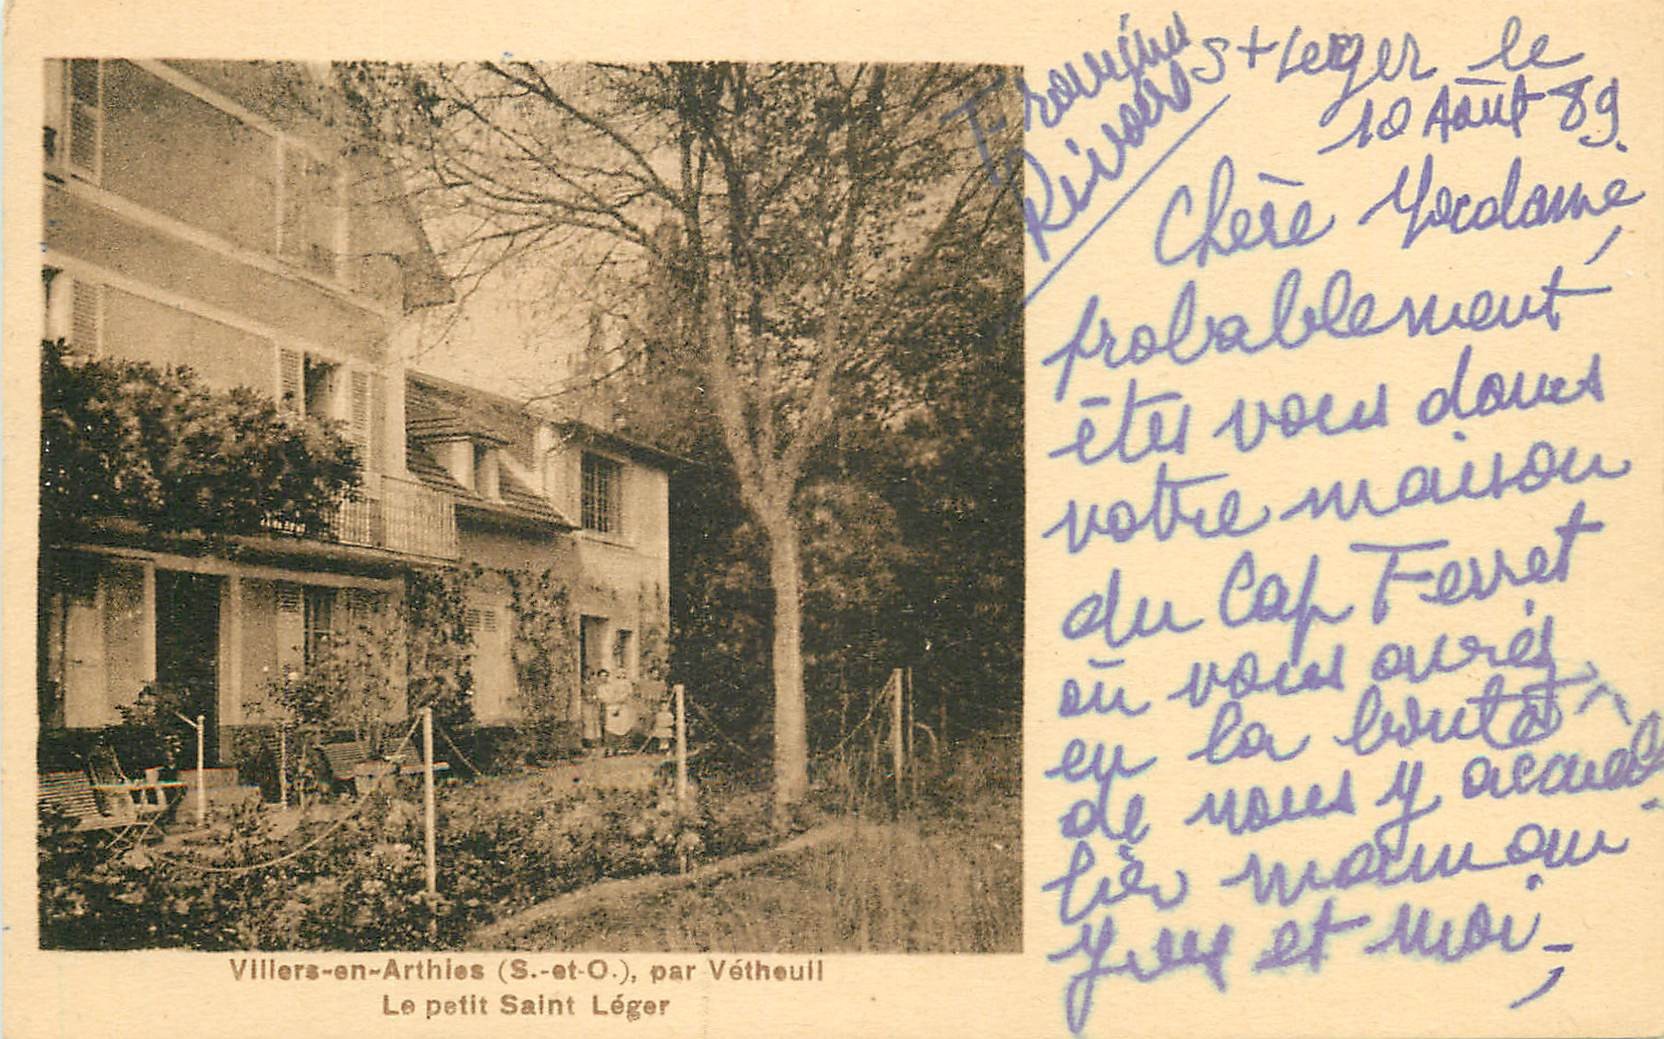 St Leger le
10 Août 89.
Chère Madame,
probablement
êtes vous dans
votre maison
du Cap Ferret
où vous aviez
eu la bonté
de nous y accueil
lir maman
Yves et moi -
Villers-en-Arthies (S.-et-O.), par Vétheuil
Le petit Saint Léger